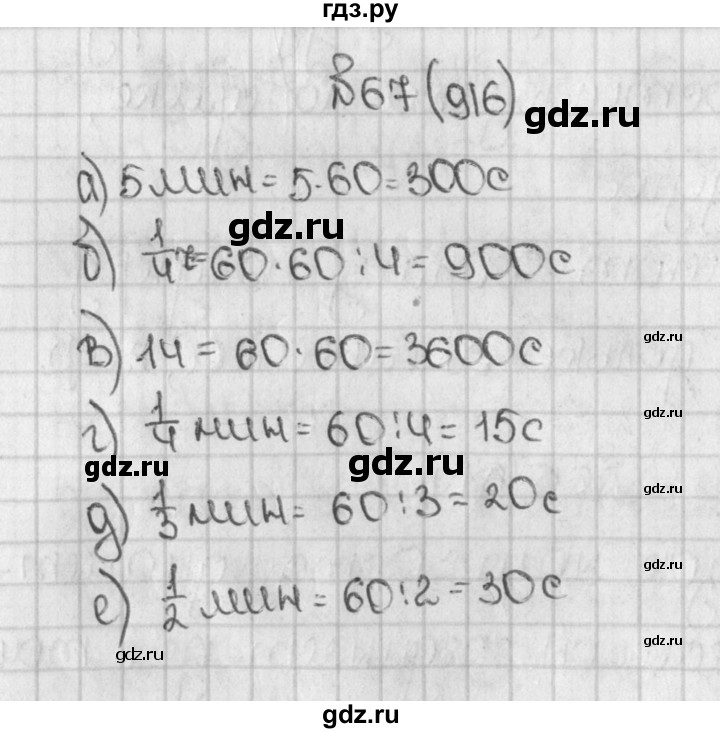 гдз.ру
№67 (916)
gdz.ru
а) 5 мин = 5·60 = 300с
gdz.ru
б) 1/4 ч = 60·60:4 = 900с
в) 1ч = 60·60 = 3600с
gdz.ru
г) 1/4 мин = 60:4 = 15с
gdz.ru
gdz.ru
gdz.ru
д) 1/3 мин = 60:3 = 20с
gdz.ru
gdz.ru
е) 1/2 мин = 60:2 = 30с
gdz.ru
gdz.ru
gdz.ru